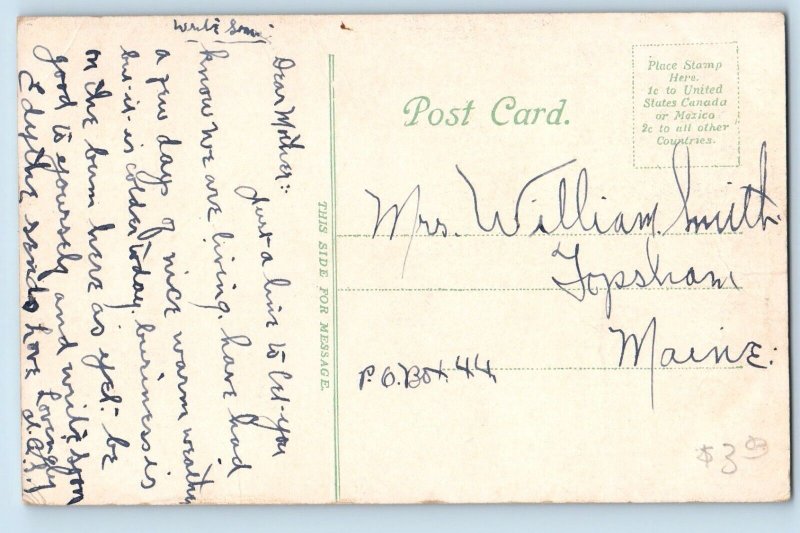 Write Soon.
Dear Mother:
Just a line to let-you
know we are living. have had
a few days of nice warm weather
but-it-is colder today. business is
on the bum here as yet- be
good to yourself and write soon
Edythe sends love Lovingly
Post Card.
Place Stamp
Here.
1c to United
States Canada
or Mexico
2c to all other
Countries.
THIS SIDE FOR MESSAGE.
Mrs. William Smith.
Topsham
Maine:
P.O. Box. 44.
$3.00